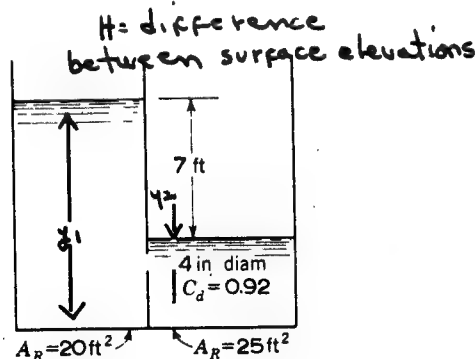 H = difference
between surface elevations
7 ft
y2
y1
4 in diam
C_d = 0.92
A_R = 20 ft²
A_R = 25 ft²